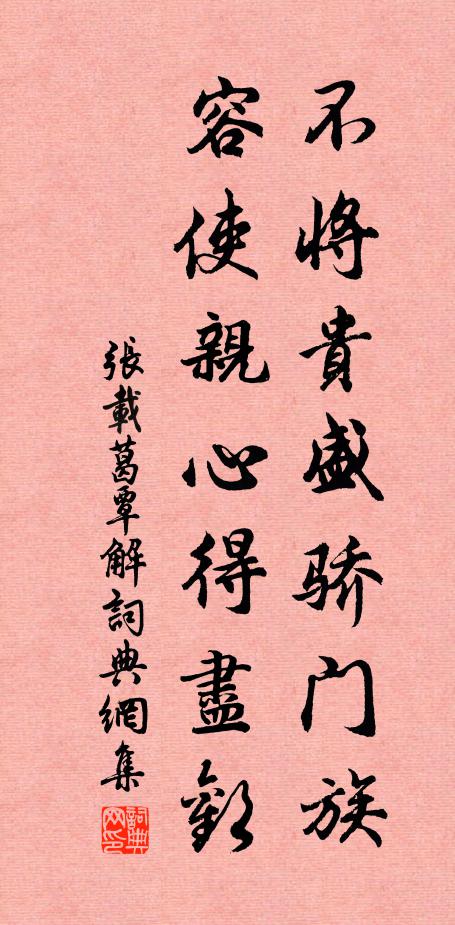 不将貴盛骄门族
容使親心得盡歡
張載葛覃解詞典網集
詞典网印